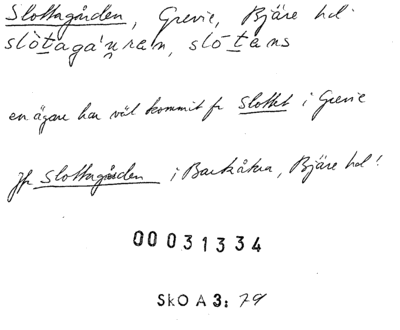 Slottagården, Grevie, Bjäre hd.
slòtagán̥ran, slṑtans
en ägare har väl kommit fr slottet i Grevie
Jfr Slottagården i Barkåkra, Bjäre hd!
00031334
SkO A 3: 79